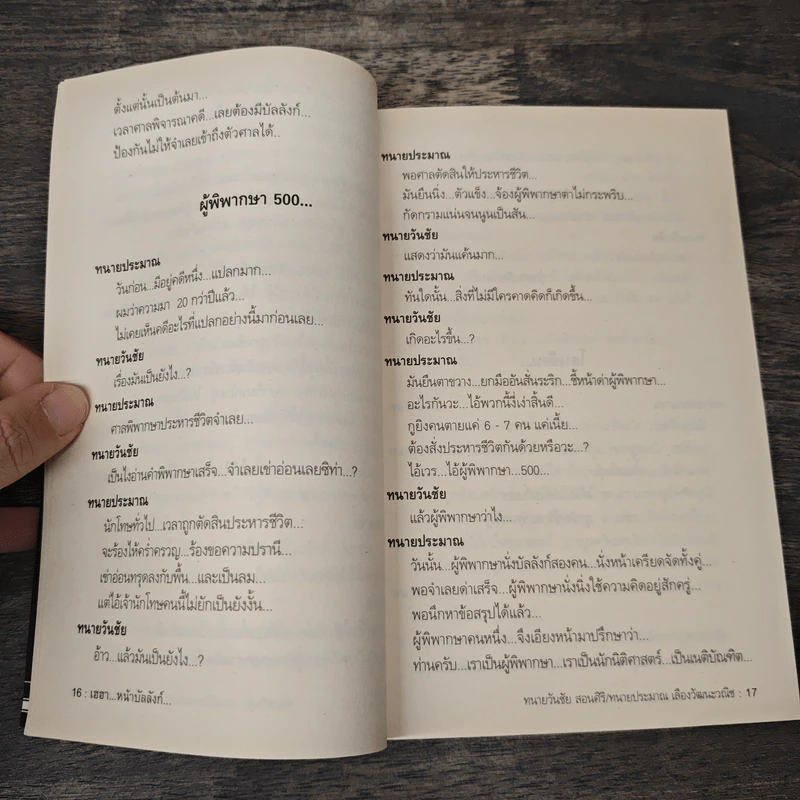 ตั้งแต่นั้นเป็นต้นมา...
เวลาศาลพิจารณาคดี...เลยต้องมีบัลลังก์...
ป้องกันไม่ให้จำเลยเข้าถึงตัวศาลได้..
ผู้พิพากษา 500...
ทนายประมาณ
วันก่อน...มีอยู่คดีหนึ่ง...แปลกมาก...
ผมว่าความมา 20 กว่าปีแล้ว...
ไม่เคยเห็นคดีอะไรที่แปลกอย่างนี้มาก่อนเลย...
ทนายวันชัย
เรื่องมันเป็นยังไง...?
ทนายประมาณ
ศาลพิพากษาประหารชีวิตจำเลย...
ทนายวันชัย
เป็นไงอ่านคำพิพากษาเสร็จ...จำเลยเข่าอ่อนเลยซิท่า...?
ทนายประมาณ
นักโทษทั่วไป...เวลาถูกตัดสินประหารชีวิต...
จะร้องไห้คร่ำครวญ...ร้องขอความปรานี...
เข่าอ่อนทรุดลงกับพื้น...และเป็นลม...
แต่ไอ้เจ้านักโทษคนนี้ไม่ยักเป็นยังงั้น...
ทนายวันชัย
อ้าว...แล้วมันเป็นยังไง...?
16 : เฮฮา...หน้าบัลลังก์...
ทนายประมาณ
พอศาลตัดสินให้ประหารชีวิต...
มันยืนนิ่ง...ตัวแข็ง...จ้องผู้พิพากษาตาไม่กระพริบ...
กัดกรามแน่นจนนูนเป็นสัน...
ทนายวันชัย
แสดงว่ามันแค้นมาก...
ทนายประมาณ
ทันใดนั้น...สิ่งที่ไม่มีใครคาดคิดก็เกิดขึ้น...
ทนายวันชัย
เกิดอะไรขึ้น...?
ทนายประมาณ
มันยืนตาขวาง...ยกมืออันสั่นระริก...ชี้หน้าด่าผู้พิพากษา...
อะไรกันวะ...ไอ้พวกนี้งี่เง่าสิ้นดี...
กูยิงคนตายแค่ 6 - 7 คน แค่เนี้ย...
ต้องสั่งประหารชีวิตกันด้วยหรือวะ...?
ไอ้เวร...ไอ้ผู้พิพากษา...500...
ทนายวันชัย
แล้วผู้พิพากษาว่าไง...
ทนายประมาณ
วันนั้น...ผู้พิพากษานั่งบัลลังก์สองคน...นั่งหน้าเครียดจัดทั้งคู่...
พอจำเลยด่าเสร็จ...ผู้พิพากษานั่งนิ่งใช้ความคิดอยู่สักครู่...
พอนึกหาข้อสรุปได้แล้ว...
ผู้พิพากษาคนหนึ่ง...จึงเอียงหน้ามาปรึกษาว่า...
ท่านครับ...เราเป็นผู้พิพากษา...เราเป็นนักนิติศาสตร์...เป็นเนติบัณฑิต...
ทนายวันชัย สอนศิริ/ทนายประมาณ เลืองวัฒนะวณิช : 17